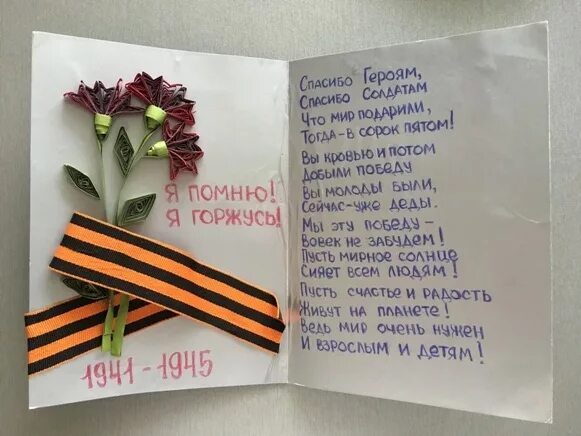 Я ПОМНЮ!
Я ГОРЖУСЬ!
1941-1945
СПАСИБО ГЕРОЯМ,
СПАСИБО СОЛДАТАМ
ЧТО МИР ПОДАРИЛИ,
ТОГДА-В СОРОК ПЯТОМ!
ВЫ КРОВЬЮ И ПОТОМ
ДОБЫЛИ ПОБЕДУ
ВЫ МОЛОДЫ БЫЛИ,
СЕЙЧАС-УЖЕ ДЕДЫ.
МЫ ЭТУ ПОБЕДУ-
ВОВЕК НЕ ЗАБУДЕМ!
ПУСТЬ МИРНОЕ СОЛНЦЕ
СИЯЕТ ВСЕМ ЛЮДЯМ!
ПУСТЬ СЧАСТЬЕ И РАДОСТЬ
ЖИВУТ НА ПЛАНЕТЕ!
ВЕДЬ МИР ОЧЕНЬ НУЖЕН
И ВЗРОСЛЫМ И ДЕТЯМ!